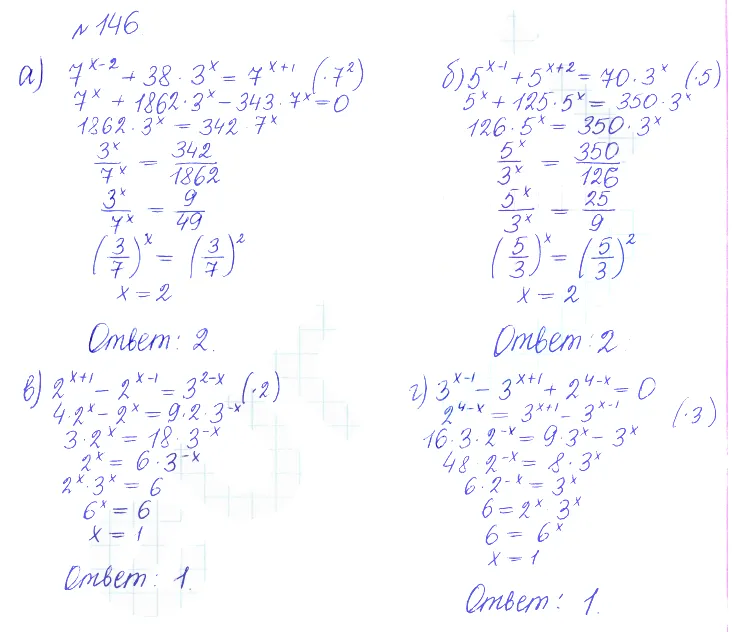 № 146
а) 7^{x-2} + 38 · 3^x = 7^{x+1} (·7^2)
7^x + 1862 · 3^x − 343 · 7^x = 0
1862 · 3^x = 342 · 7^x
3^x/7^x = 342/1862
3^x/7^x = 9/49
(3/7)^x = (3/7)^2
x = 2
Ответ: 2.
б) 5^{x-1} + 5^{x+2} = 70 · 3^x (·5)
5^x + 125 · 5^x = 350 · 3^x
126 · 5^x = 350 · 3^x
5^x/3^x = 350/126
5^x/3^x = 25/9
(5/3)^x = (5/3)^2
x = 2
Ответ: 2
в) 2^{x+1} − 2^{x-1} = 3^{2-x} (·2)
4 · 2^x − 2^x = 9 · 2 · 3^{-x}
3 · 2^x = 18 · 3^{-x}
2^x = 6 · 3^{-x}
2^x · 3^x = 6
6^x = 6
x = 1
Ответ: 1.
г) 3^{x-1} − 3^{x+1} + 2^{4-x} = 0
2^{4-x} = 3^{x+1} − 3^{x-1} (·3)
16 · 3 · 2^{-x} = 9 · 3^x − 3^x
48 · 2^{-x} = 8 · 3^x
6 · 2^{-x} = 3^x
6 = 2^x · 3^x
6 = 6^x
x = 1
Ответ: 1.